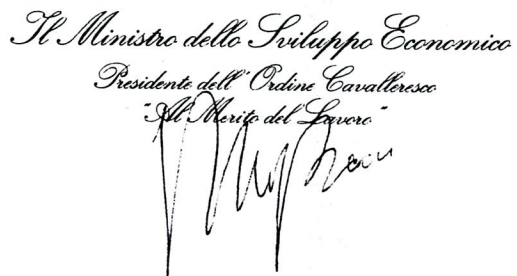 Il Ministro dello Sviluppo Economico
Presidente dell' Ordine Cavalleresco
"Al Merito del Lavoro"